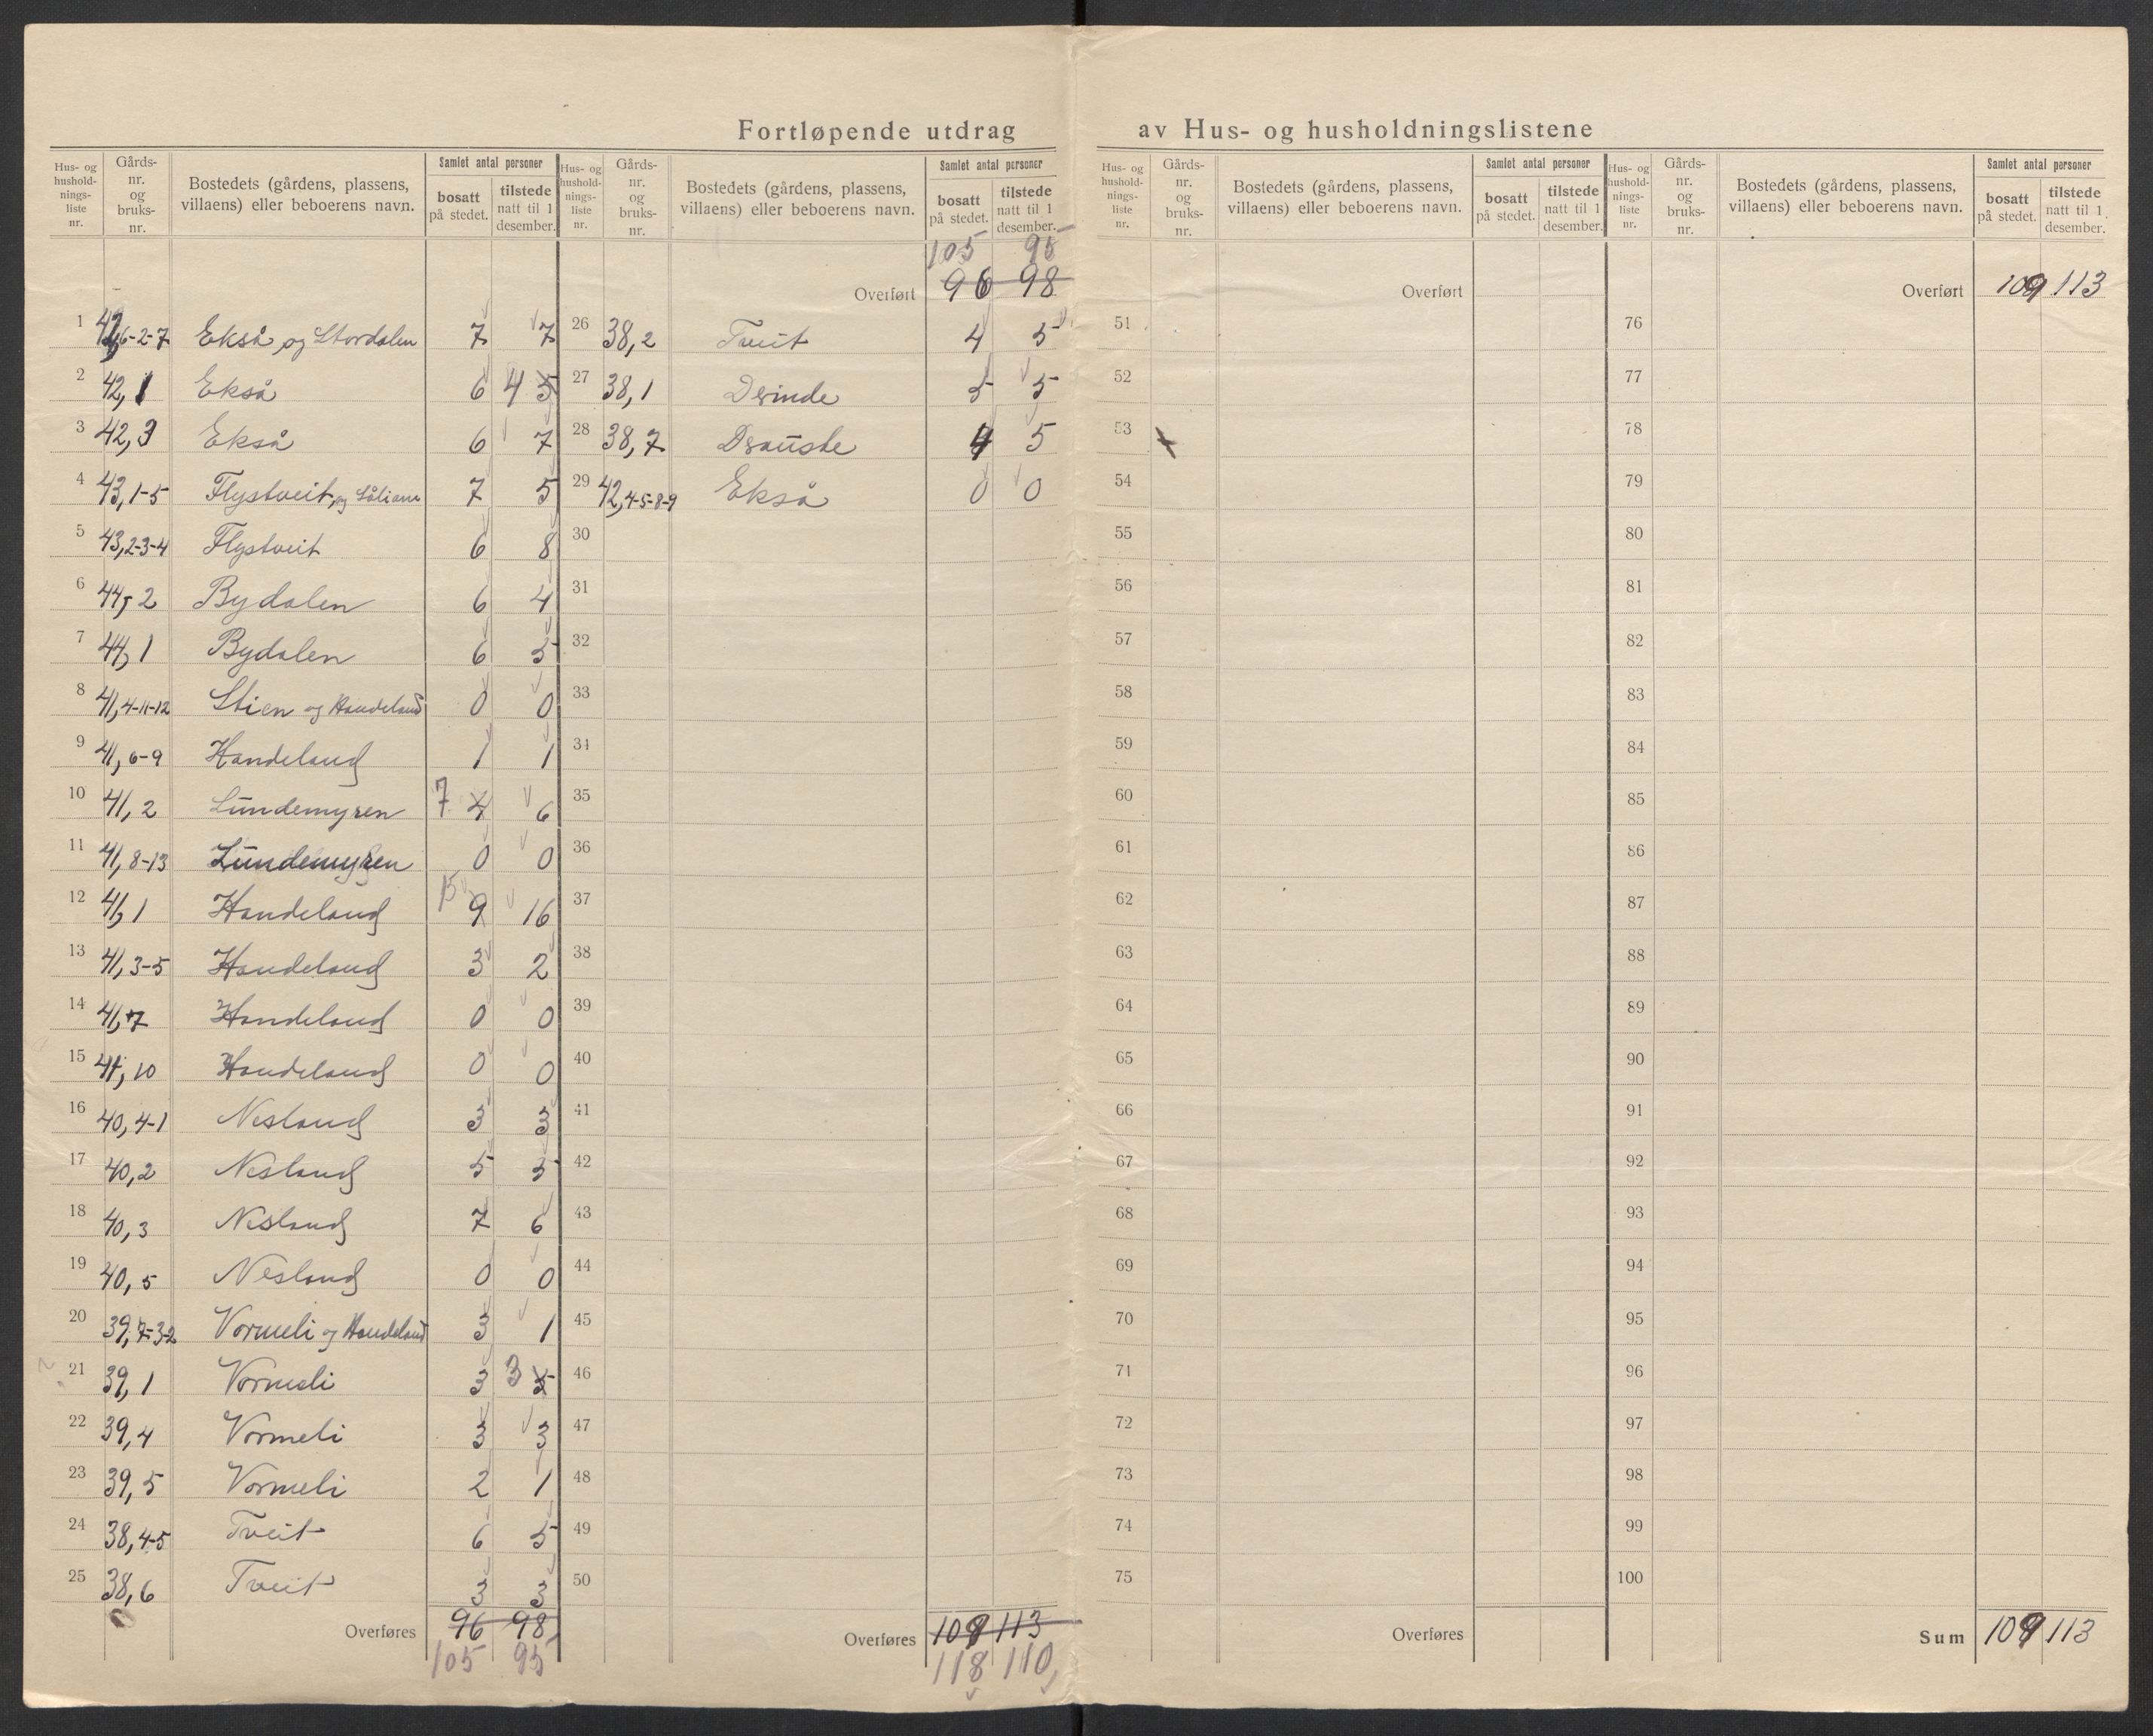 Fortløpende utdrag av Hus- og husholdningslistene
Hus- og hushold-nings-liste nr. Gårds-nr. og bruks-nr. Bostedets (gårdens, plassens, villaens) eller beboerens navn. Samlet antal personer bosatt på stedet. tilstede natt til 1 desember.
1 42,6-2-7 Ekså og Stordalen 7 7
2 42,1 Ekså 6 4 5
3 42,3 Ekså 6 7
4 43,1-5 Flystveit og 7 5
5 43,2-3-4 Flystveit 6 8
6 44,2 Bydalen 6 4
7 44,1 Bydalen 6 5
8 41,4-11-12 Stien og Handeland 0 0
9 41,6-9 Handeland 1 1
10 41,2 Lundemyren 7 4 6
11 41,8-13 Lundemyren 0 0
12 41,1 Handeland 15 9 16
13 41,3-5 Handeland 3 2
14 41,7 Handeland 0 0
15 41,10 Handeland 0 0
16 40,4-1 Nesland 3 3
17 40,2 Nesland 5 5
18 40,3 Nesland 7 6
19 40,5 Nesland 0 0
20 39,7-3-2 Vormeli og Handeland 3 1
21 39,1 Vormeli 3 3 5
22 39,4 Vormeli 3 3
23 39,5 Vormeli 2 1
24 38,4-5 Tveit 6 5
25 38,6 Tveit 3 3
Overføres 96 98
105 95
Hus- og hushold-nings-liste nr. Gårds-nr. og bruks-nr. Bostedets (gårdens, plassens, villaens) eller beboerens navn. Samlet antal personer bosatt på stedet. tilstede natt til 1 desember.
105 95
Overført 96 98
26 38,2 Tveit 4 5
27 38,1 5 5
28 38,7 4 5
29 42,4-5-8-9 Ekså 0 0
30
31
32
33
34
35
36
37
38
39
40
41
42
43
44
45
46
47
48
49
50
Overføres 109 113
118 110
Hus- og hushold-nings-liste nr. Gårds-nr. og bruks-nr. Bostedets (gårdens, plassens, villaens) eller beboerens navn. Samlet antal personer bosatt på stedet. tilstede natt til 1 desember.
Overført
51
52
53
54
55
56
57
58
59
60
61
62
63
64
65
66
67
68
69
70
71
72
73
74
75
Overføres
Hus- og hushold-nings-liste nr. Gårds-nr. og bruks-nr. Bostedets (gårdens, plassens, villaens) eller beboerens navn. Samlet antal personer bosatt på stedet. tilstede natt til 1 desember.
Overført 109 113
76
77
78
79
80
81
82
83
84
85
86
87
88
89
90
91
92
93
94
95
96
97
98
99
100
Sum 109 113